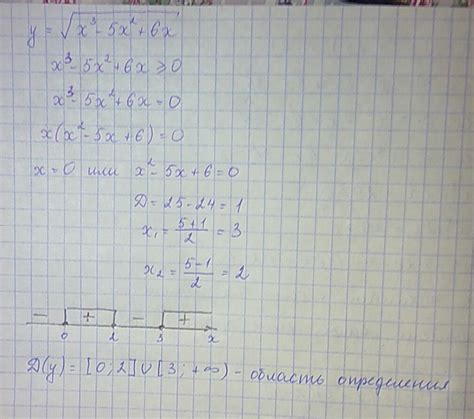 y = √x³ - 5x² + 6x
x³ - 5x² + 6x ≥ 0
x³ - 5x² + 6x = 0
x(x² - 5x + 6) = 0
x = 0 или x² - 5x + 6 = 0
D = 25 - 24 = 1
x₁ = (5+1)/2 = 3
x₂ = (5-1)/2 = 2
- + - +
0 2 3 x
D(y) = [0; 2] ∪ [3; +∞) - область определения